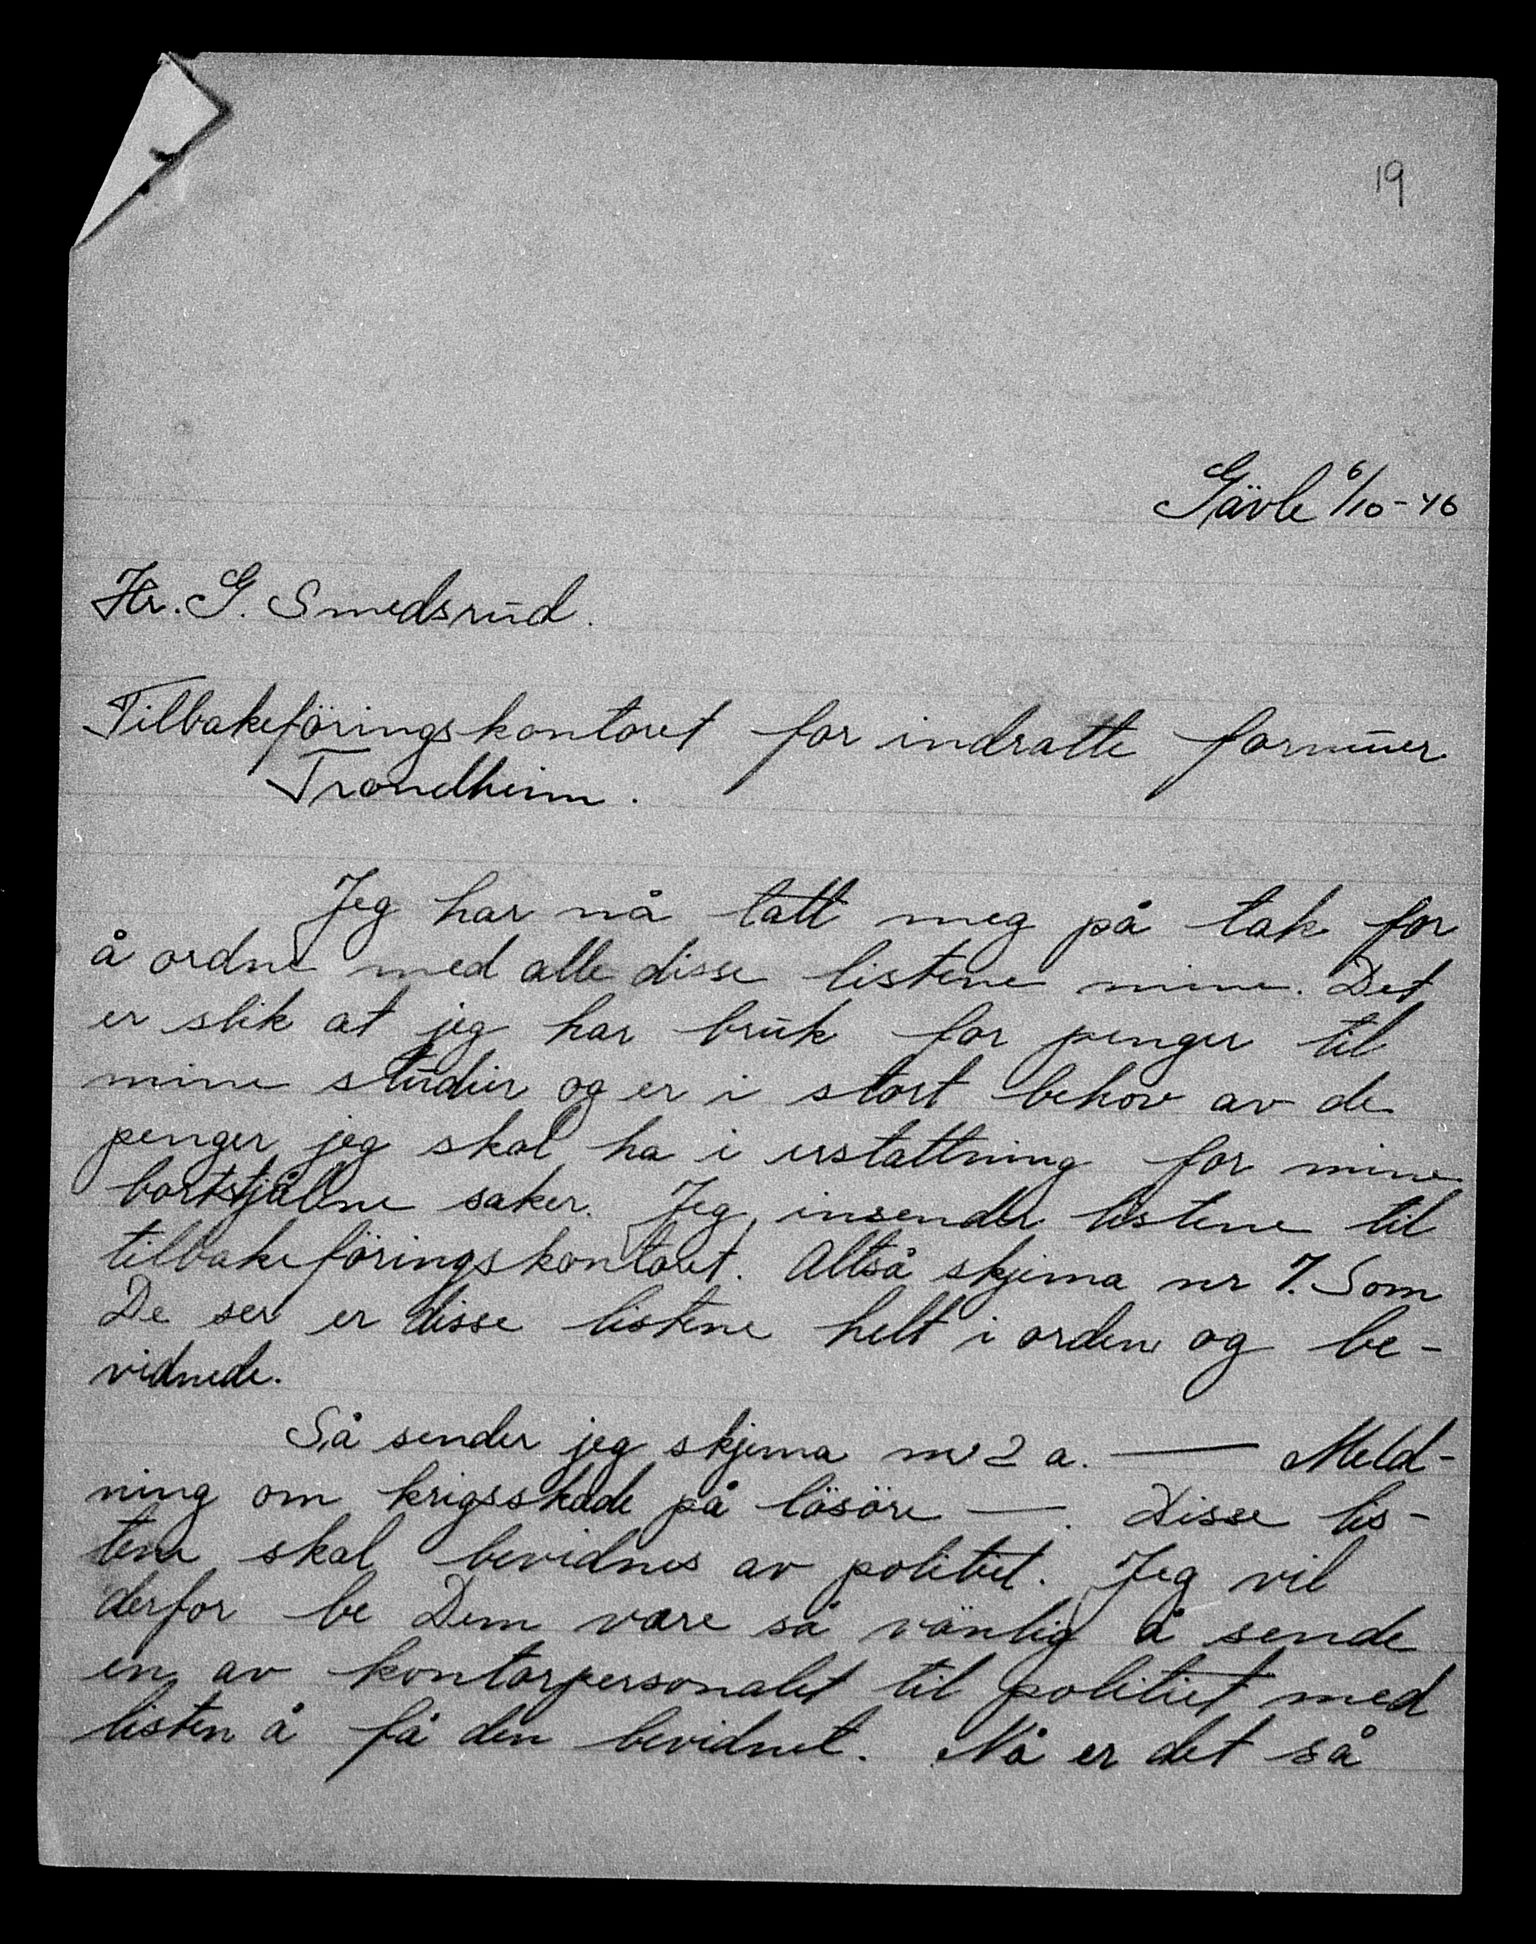 19
Gävle 6/10-46
Hr. G. Smedsrud.
Tilbakeföringskontoret for indratte formuer
Trondheim.
Jeg har nå tatt meg på tak for
å ordne med alle disse listene mine. Det
er slik at jeg har bruk for penger til
mine studier og er i stort behov av de
penger jeg skal ha i erstattning for mine
bortstjålne saker. Jeg insender listene til
tilbakeföringskontoret. Altså skjema nr 7. Som
De ser er disse listene helt i orden og be-
vidnede.
Så sender jeg skjema nr 2 a. — Meld-
ning om krigsskade på lösöre —. Disse lis-
tene skal bevidnes av politiet. Jeg vil
derfor be Dem være så vänlig å sende
en av kontorpersonalet til politiet med
listen å få den bevidnet. Nå er det så